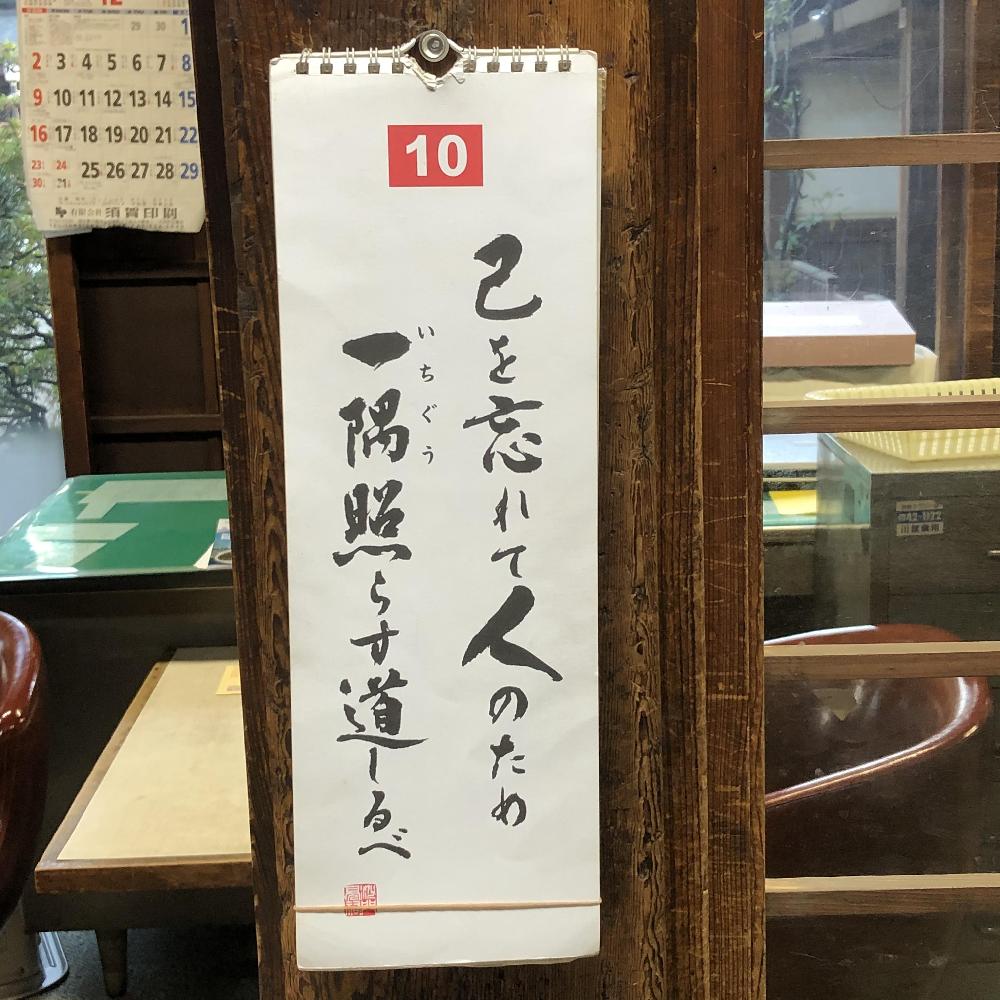 10
己を忘れて人のため
いちぐう
一隅照らす道しるべ
12
29 30 1
2 3 4 5 6 7 8
9 10 11 12 13 14 15
16 17 18 19 20 21 22
23 24 25 26 27 28 29
30 31
有限会社 須賀印刷